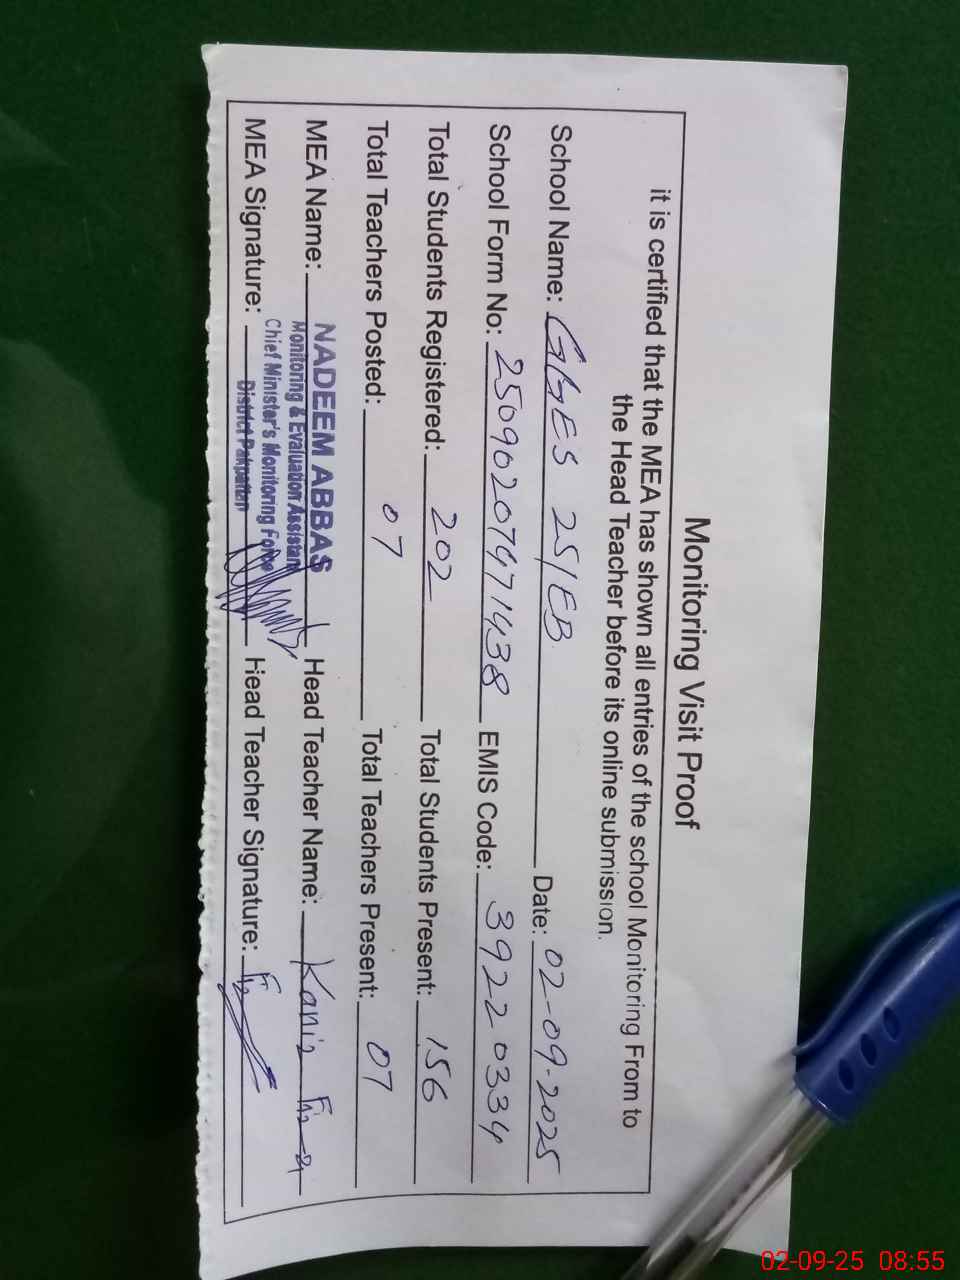 Monitoring Visit Proof
it is certified that the MEA has shown all entries of the school Monitoring From to
the Head Teacher before its online submission.
School Name: GGES 25/EB Date: 02-09-2025
School Form No: 25090207471438 EMIS Code: 39220334
Total Students Registered: 202 Total Students Present: 156
Total Teachers Posted: 07 Total Teachers Present: 07
MEA Name: NADEEM ABBAS Head Teacher Name: Kaniz
Monitoring & Evaluation Assistant
Chief Minister's Monitoring Force
District Pakpattan
MEA Signature: Head Teacher Signature:
02-09-25 08:55